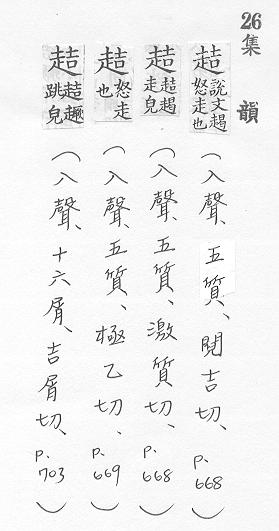 26集 韻
趌 說文 怒走也 (入聲、五質、閴吉切、p.668)
趌 趌 走皃 (入聲、五質、激質切、p.668)
趌 怒走也 (入聲、五質、極乙切、p.669)
趌 趌 跳皃 (入聲、十六屑、吉屑切、p.703)